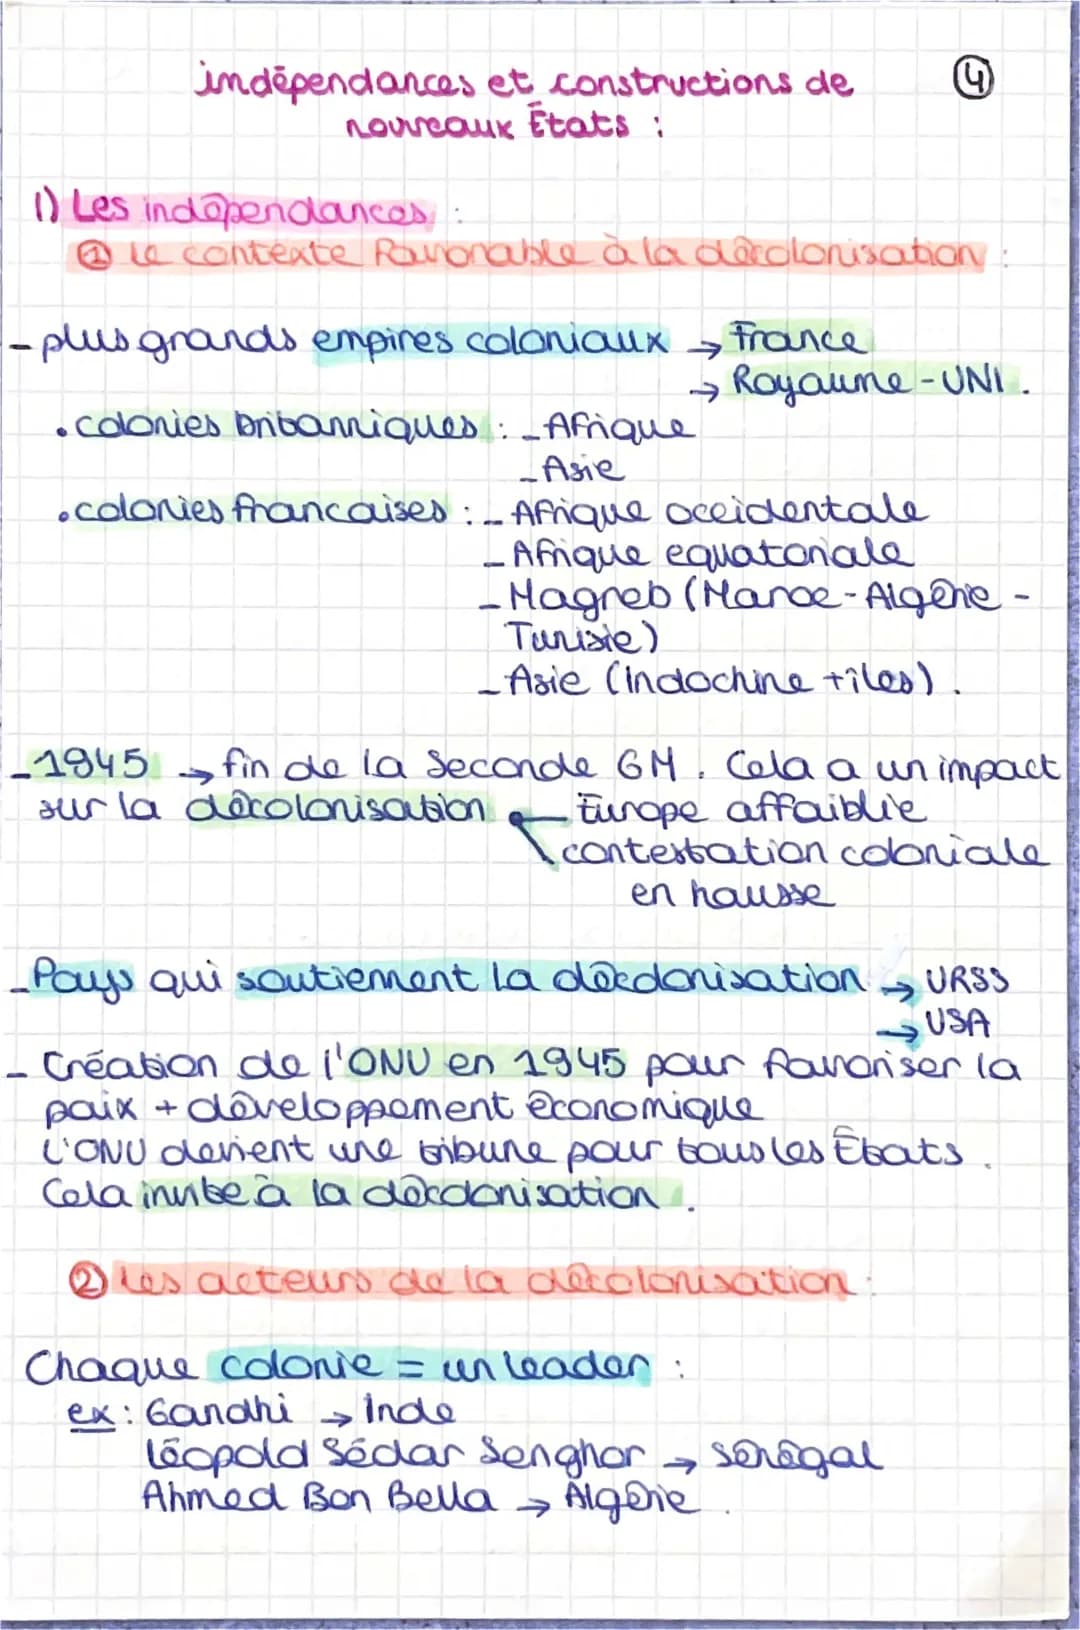 indépendances et constructions de
④
nouveaux États :
1) Les indépendances :
① Le contexte favorable à la décolonisation :
- plus grands empires coloniaux → France
→ Royaume-UNI.
. colonies britanniques : - Afrique
- Asie
. colonies francaises : - Afrique occidentale
- Afrique equatoriale
- Magreb (Maroc - Algérie -
Tunisie)
- Asie (Indochine + îles).
- 1945 → fin de la Seconde GM. Cela a un impact
sur la décolonisation Europe affaiblie
contestation coloniale
en hausse
- Pays qui soutiennent la décolonisation → URSS
→ USA
- Création de l'ONU en 1945 pour favoriser la
paix + développement économique
L'ONU devient une tribune pour tous les États.
Cela invite à la décolonisation.
② Les acteurs de la décolonisation :
Chaque colonie = un leader :
ex : Gandhi → Inde
Léopold Sédar Senghor → Sénégal
Ahmed Ben Bella → Algérie.